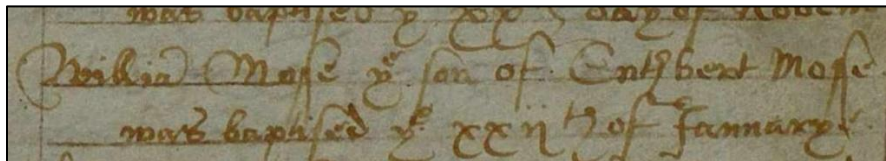 was baptised yᵉ xxᵗʰ day of Novem
Willia͞ Mosse yᵉ son of Cuthbert Mosse
was baptised yᵉ xxijᵗʰ of Januarye